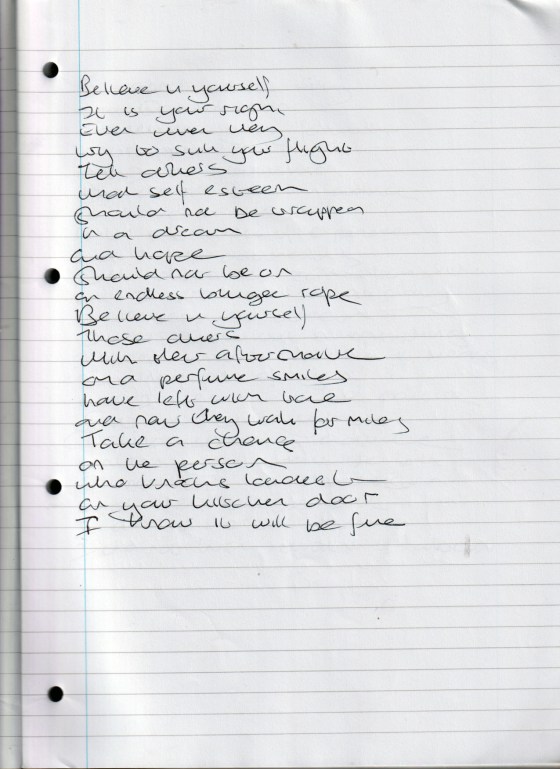 Believe in yourself
It is your right
Ever when they
try to sink your flight
Tell others
that self esteem
should not be wrapped
in a dream
and hope
should not be on
an endless longer rope
Believe in yourself
Those others
with their aftershave
and perfume smiles
have left with love
and now they walk for miles
Take a chance
on the person
who knocks loudest
on your kitchen door
I know it will be fine